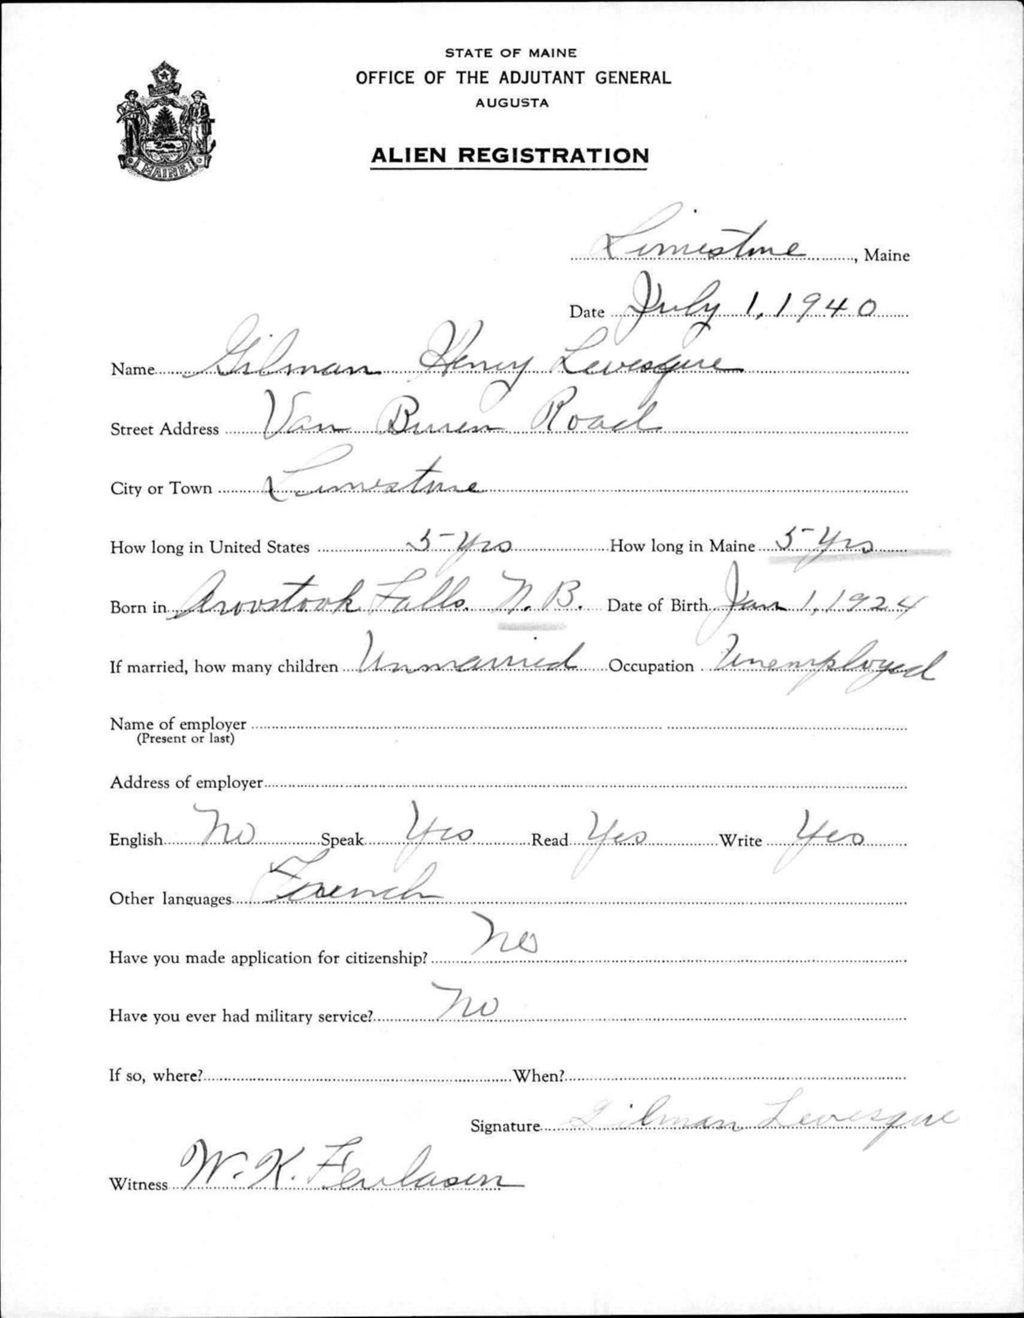 STATE OF MAINE
OFFICE OF THE ADJUTANT GENERAL
AUGUSTA
ALIEN REGISTRATION
MAINE
Limestone, Maine
Date July 1, 1940
Name Gilman Henry Levesque
Street Address Van Buren Road
City or Town Limestone
How long in United States 5 Yrs How long in Maine 5 Yrs
Born in Aroostook Falls. N.B. Date of Birth Jan 1, 1924
If married, how many children Unmarried Occupation Unemployed
Name of employer
(Present or last)
Address of employer
English No Speak Yes Read Yes Write Yes
Other languages French
Have you made application for citizenship? No
Have you ever had military service? No
If so, where? When?
Signature Gilman Levesque
Witness W. K.